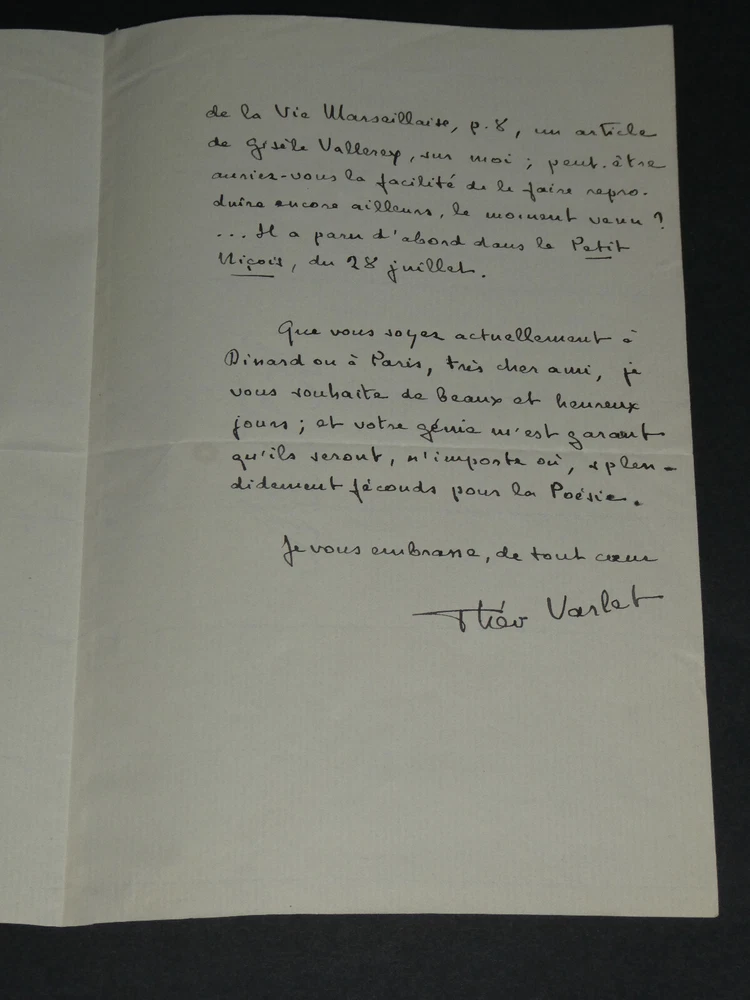 de la Vie Marseillaise, p. 8, un article
de Gisèle Vallerey, sur moi ; peut-être
auriez-vous la facilité de le faire repro-
duire encore ailleurs, le moment venu ?
... Il a paru d'abord dans le Petit
Niçois, du 28 juillet.
Que vous soyez actuellement à
Dinard ou à Paris, très cher ami, je
vous souhaite de beaux et heureux
jours ; et votre génie m'est garant
qu'ils seront, n'importe où, splen-
didement féconds pour la Poésie.
Je vous embrasse, de tout cœur
Théo Varlet